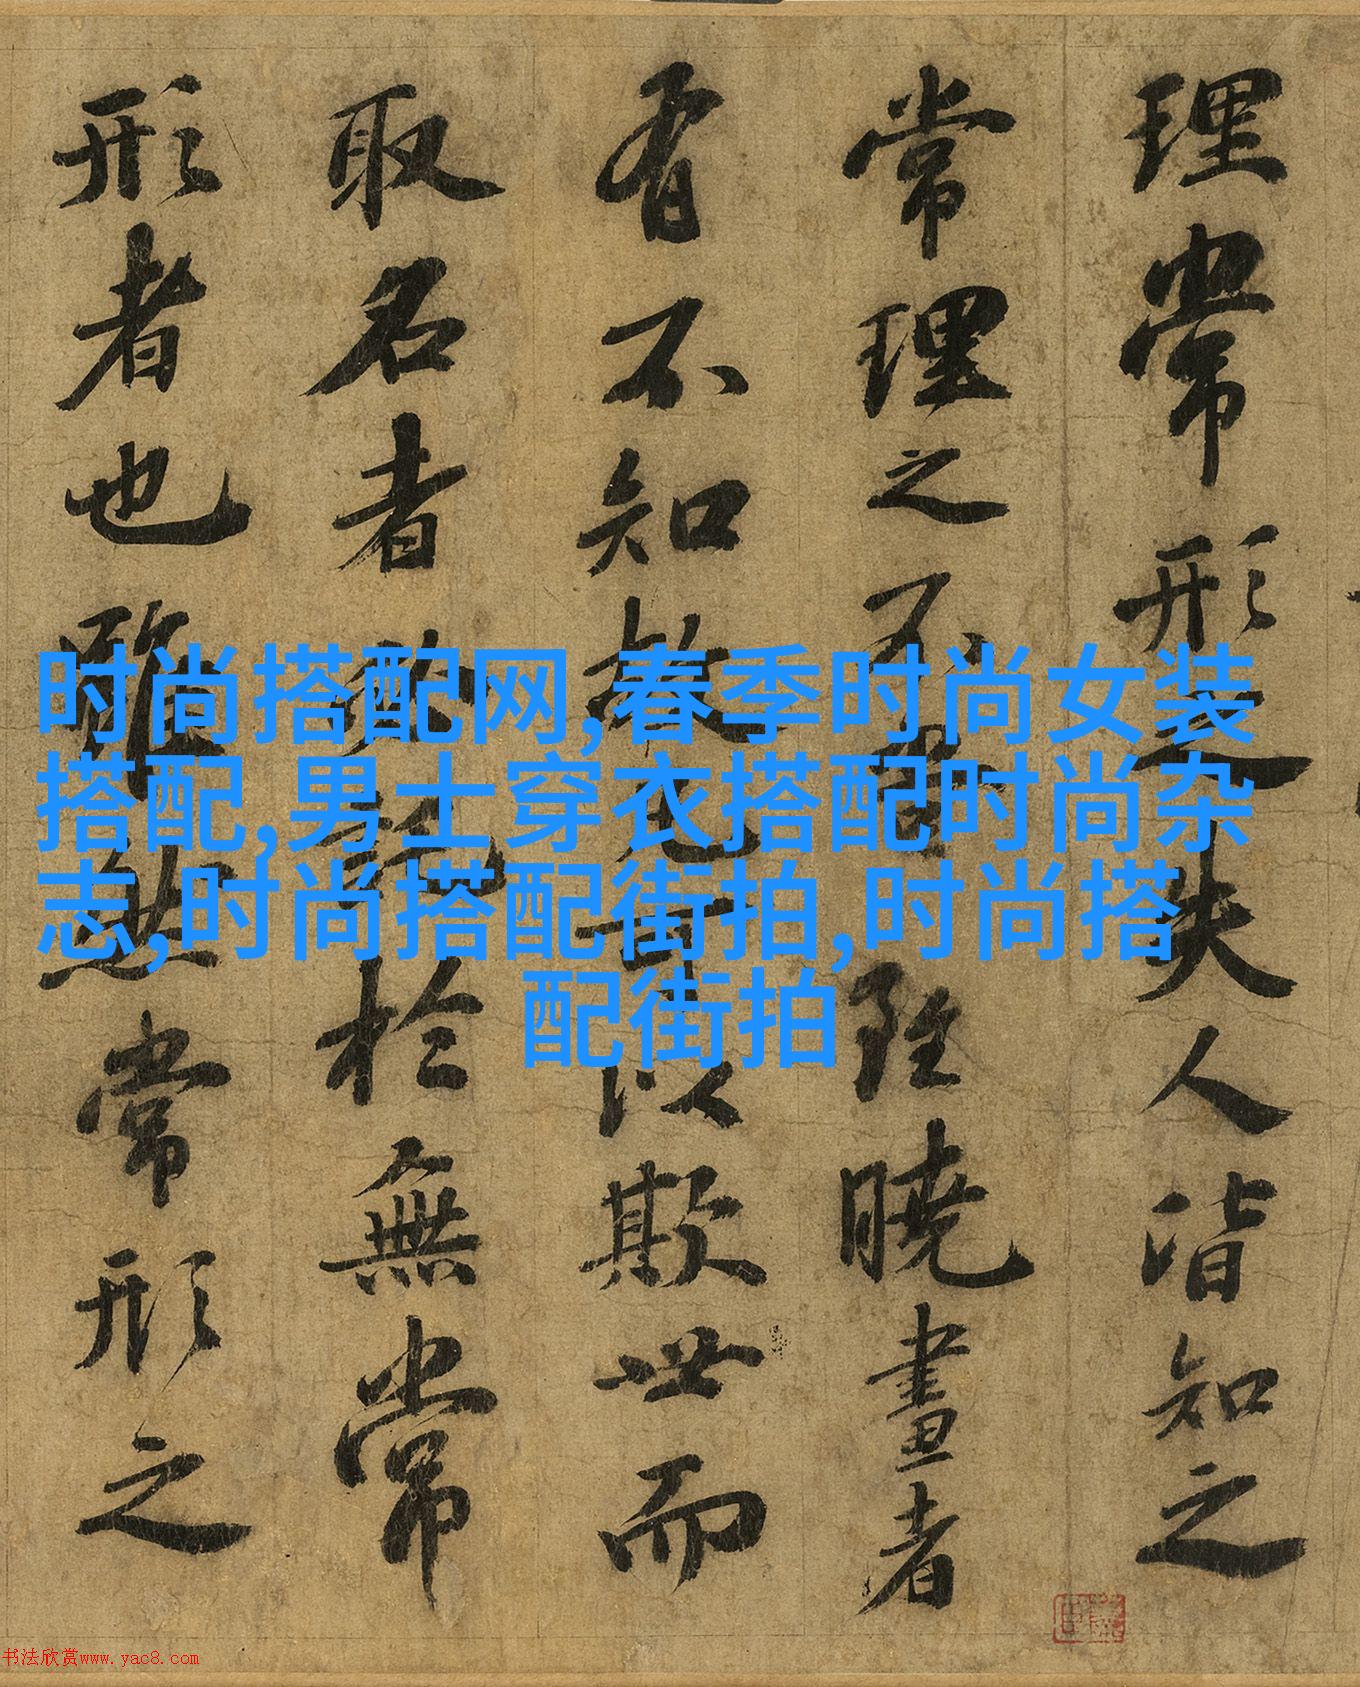 理常形之失人皆知之
常理之不當雖曉畫者
有不知故凡可以欺世而
取名者必託於無常
形者也雖然常形之
时尚搭配网,春季时尚女装
搭配,男士穿衣搭配时尚杂
志,时尚搭配街拍,时尚搭
配街拍
书法欣赏www.yac8.com